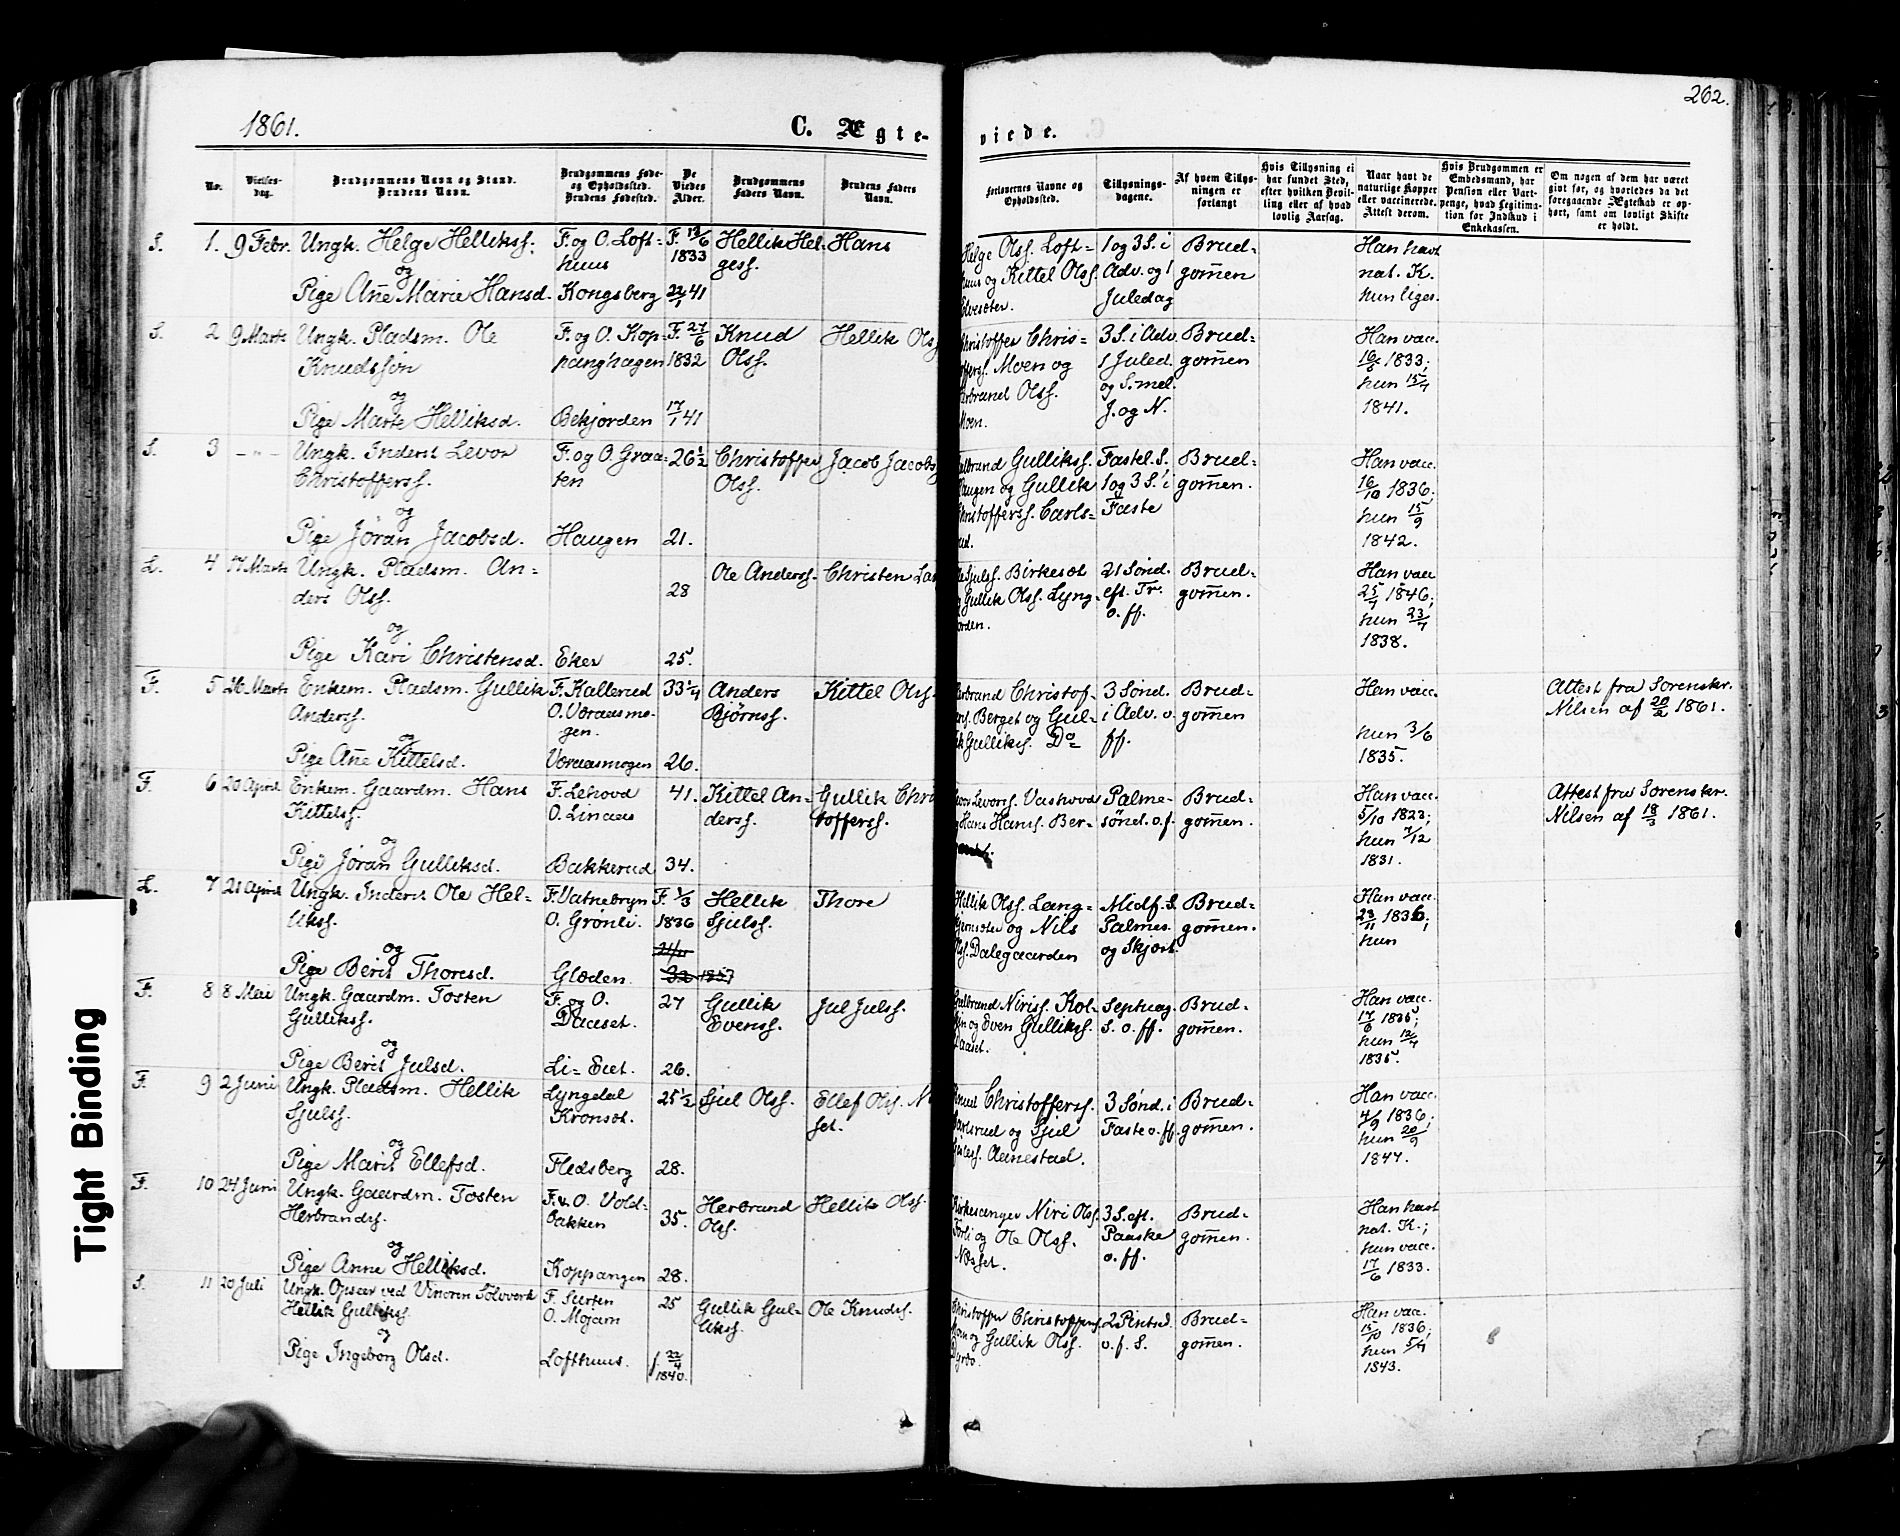 1861.
C. Ægte-
viede.
262.
No.
Vielses-
dag.
Brudgommens Navn og Stand.
Brudens Navn.
Brudgommens Føde-
og Opholdssted.
Brudens Fødested.
De
Viedes
Alder.
Brudgommens
Faders Navn.
Brudens Faders
Navn.
Forlovernes Navne og
Opholdssted.
Tillysnings-
dagene.
Af hvem Tillys-
ningen er
forlangt
Hvis Tillysning ei
har fundet Sted,
efter hvilken Bevil-
ling eller af hvad
lovlig Aarsag.
Naar havt de
naturlige Kopper
eller vaccinerede.
Attest derom.
Hvis Brudgommen er
Embedsmand, har
Pension eller Vart-
penge, hvad Legitima-
tion for Indskud i
Enkekassen.
Om nogen af dem har været
givt før, og hvorledes da det
foregaaende Ægteskab er op-
hørt, samt om lovligt Skifte
er holdt.
S. 1. 9 Febr. Ungk. Helge Helliksf.
og
Pige Añe Marie Hansd.
F. og O. Loft-
huus
Kongsberg
F. 13/6
1833
22/1 41
Hellik Hel-
gesf.
Hans
Helge Olsf. Loft-
huus og Kittel Olsf.
Elvesæter.
1 og 3 S. i
Adv. og 1
Juledag
Brud-
gom̃en
Han havt
nat. K.
hun liges.
S. 2 9 Marts Ungk. Pladsm. Ole
Knudssøn
og
Pige Marte Helliksd.
F. og O. Kop-
panghagen
Bekjorden
F. 27/6
1832
17/1 41
Knud
Olsf.
Hellik Olsf
Christoffer Chris-
toffersf. Moen og
Herbrand Olsf.
Moen.
3 S. i Adv.
1 Juled.
og S. mel.
J. og N.
Brud-
gom̃en
Han vacc.
16/5 1833;
hun 15/7
1841.
S. 3 - " - Ungk. Inderst Levor
Christoffersf.
og
Pige Jøran Jacobsd.
F. og O. Graa-
ten
Haugen
26 1/2
21.
Christoffer
Olsf.
Jacob Jacobs
Gulbrand Gulliksf.
Haugen og Gullik
Christoffersf. Carls-
rud.
Fastel. S.
1 og 3 S. i
Faste
Brud-
gom̃en.
Han vacc.
16/10 1836;
hun 15/9
1842.
L. 4 17 Marts Ungk. Pladsm. An-
ders Olsf.
og
Pige Kari Christensd.
Eker
28
25.
Ole Andersf.
Christen Lar
Ole Sjulsf. Birkesæt
og Gullik Olsf. Lyng-
jorden.
21 Sønd.
eft. Tr.
o. ff.
Brud-
gom̃en.
Han vacc
25/7 1846;
hun 23/7
1838.
F. 5 26 Marts Enkem. Pladsm. Gullik
Andersf.
og
Pige Añe Kittelsd.
F. Kallerud
O. Væraasmo-
gen.
Væraasmogen
33 1/4
26.
Anders
Bjørnsf.
Kittel Olsf.
Herbrand Christof-
fersf. Berget og Gul-
lik Gulliksf. Do
3 Sønd.
i Adv. o.
ff.
Brud-
gom̃en
Han vacc.
hun 3/6
1835.
Attest fra Sorenskr.
Nilsen af 20/2 1861.
F. 6 20 April Enkem. Gaardm. Hans
Kittelsf.
og
Pige Jøran Gulliksd.
F. Lehovd
O. Linaas
Bakkerud
41.
34.
Kittel An-
dersf.
Gullik Chri
toffersf.
Levor Levorsf. Vashovd
og Hans Hansf. Ber-
Palme-
sønd. o. f.
Brud-
gom̃en.
Han vacc.
5/10 1823;
hun 7/12
1831.
Attest fra Sorenskr.
Nilsen af 18/3 1861.
L. 7 21 April Ungk. Inderst Ole Hel-
liksf.
og
Pige Berit Thoresd.
F. Vatnebryn
O. Grønli.
Glæden.
F. 1/3
1836
Hellik
Sjulsf.
Thore
Hellik Olsf. Lang-
tjernsæter og Nils
Olsf. Dalegaarden
Midf. S.
Palmes.
og Skjært.
Brud-
gom̃en.
Han vacc.
23/11 1836;
hun
F. 8 8 Mai Ungk. Gaardm. Tosten
Gulliksf.
og
Pige Berit Julsd.
F. og O.
Daaset.
Li-Eiet.
27
26.
Gullik
Evensf.
Jul Julsf.
Gulbrand Nirisf. Kol-
sjøn og Even Gulliksf.
Daaset.
Septuag.
S. o. ff.
Brud-
gom̃en.
Han vacc.
17/6 1835;
hun 12/4
1835.
F. 9 2 Juni Ungk. Pladsm. Hellik
Sjulsf.
og
Pige Marit Ellefsd.
Lyngdal
Kronsæt.
Flesberg
25 1/2
28.
Sjul Olsf.
Ellef Olsf. N
set.
Knud Christoffersf.
Carlsrud og Sjul
Aanestad.
3 Sønd. i
Faste o. ff.
Brud-
gom̃en.
Han vacc.
4/9 1836;
hun 20/9
1847.
F. 10 24 Juni Ungk. Gaardm. Tosten
Herbrandsf.
og
Pige Anne Helliksd.
F. o. O. Vold-
bakken
Koppangen
35.
28.
Herbrand
Olsf.
Hellik Olsf.
Kirkesanger Niri Olsf.
Førli og Ole Olsf.
Næsset.
3 S. eft.
Paaske
o. ff.
Brud-
gom̃en.
Han havt
nat. K.;
hun vacc.
17/6 1833.
S. 11 20 Juli Ungk. Opseer ved Vinoren Sølvverk
Hellik Gulliksf.
og
Pige Ingeborg Olsd.
F. Surten
O. Mojarn
Lofthuus.
25
f. 22/4
1840.
Gullik Gul-
liksf.
Ole Knudsf.
Christoffer Christoffersf.
Moen og Gullik Olsf.
Dyrbo.
2 Pintsed.
o. f. S.
Brud-
gom̃en.
Han vacc.
15/10 1836;
hun 5/7
1843.
Tight Binding